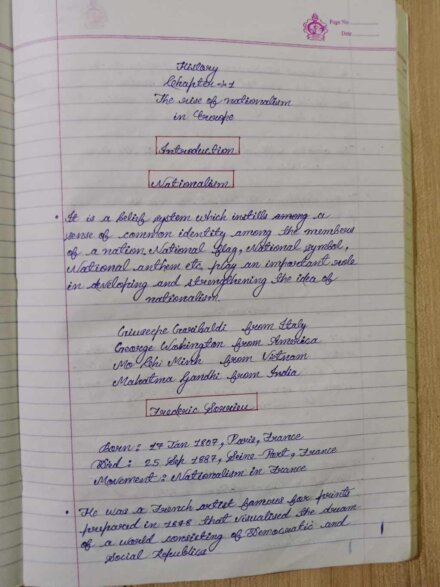 Page No
Date
History
Chapter - 1
The rise of nationalism
in Europe
Introduction
Nationalism
• It is a belief system which instills among a
sense of common identity among the members
of a nation, National flag, National symbol,
National anthem etc play an important role
in developing and strengthening the idea of
nationalism.
Giuseepe Garibaldi from Italy
George Washington from America
Ho Chi Minh from Vietnam
Mahatma Gandhi from India
Frederic Sorrieu
Born : 17 Jan 1807, Paris, France
Died : 25 Sep 1887, Seine-Port, France
Movement : Nationalism in France
• He was a French artist famous for prints
prepared in 1848 that visualised the dream
of a world consisting of Democratic and
Social Republics